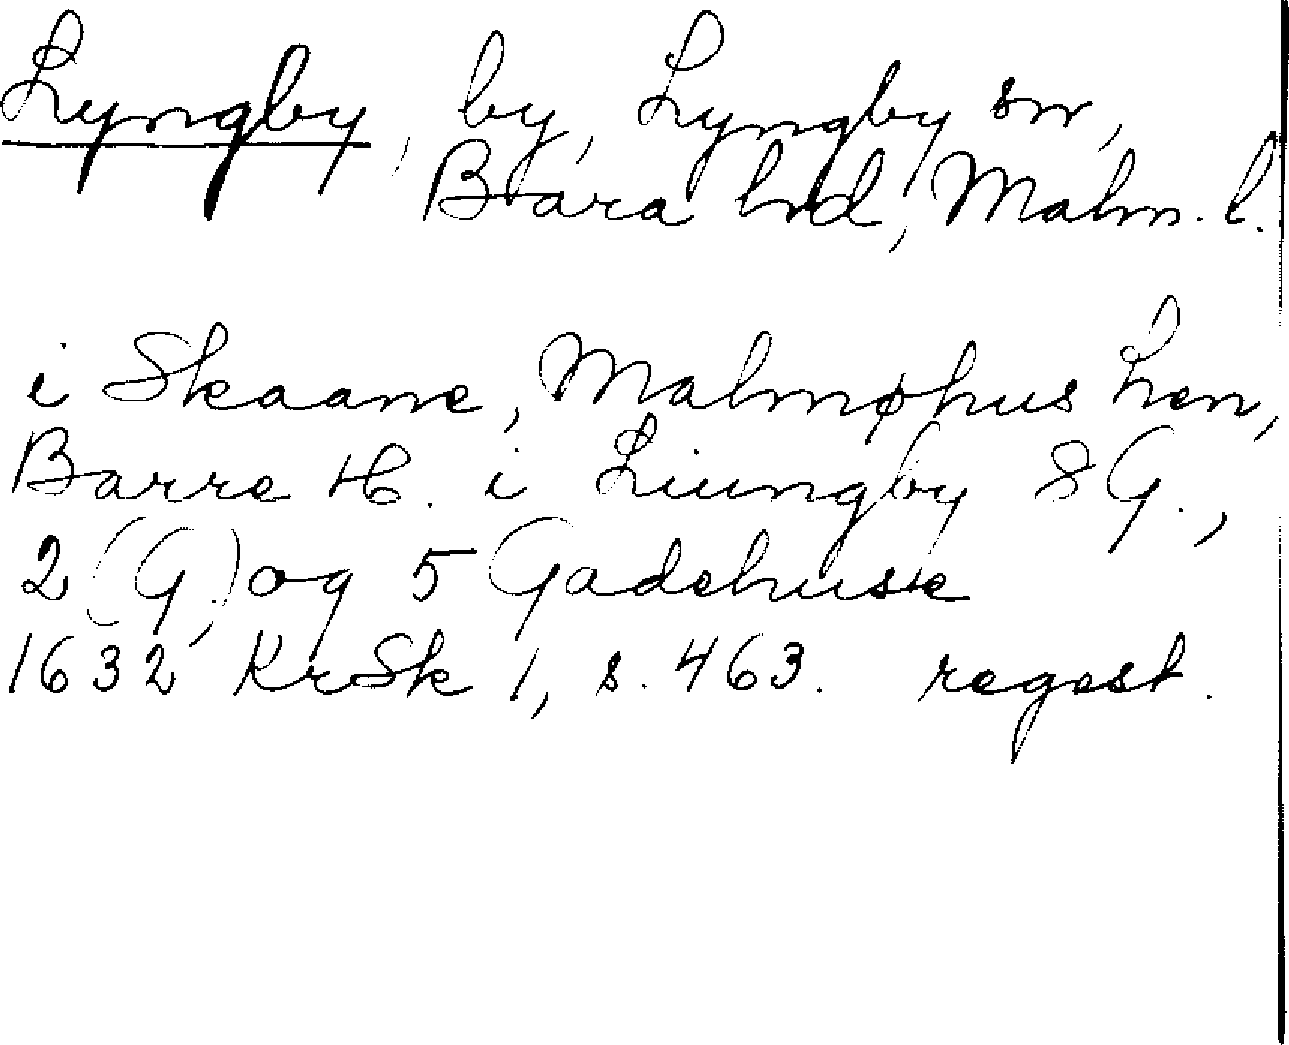 Lyngby, by, Lyngby sn,
Bara hd, Malm. l.
i Skaane, Malmøhus Len,
Barre H. i Liungby 8 G.,
2 (G.) og 5 Gadehuse
1632 KrSk 1, s. 463. regest.